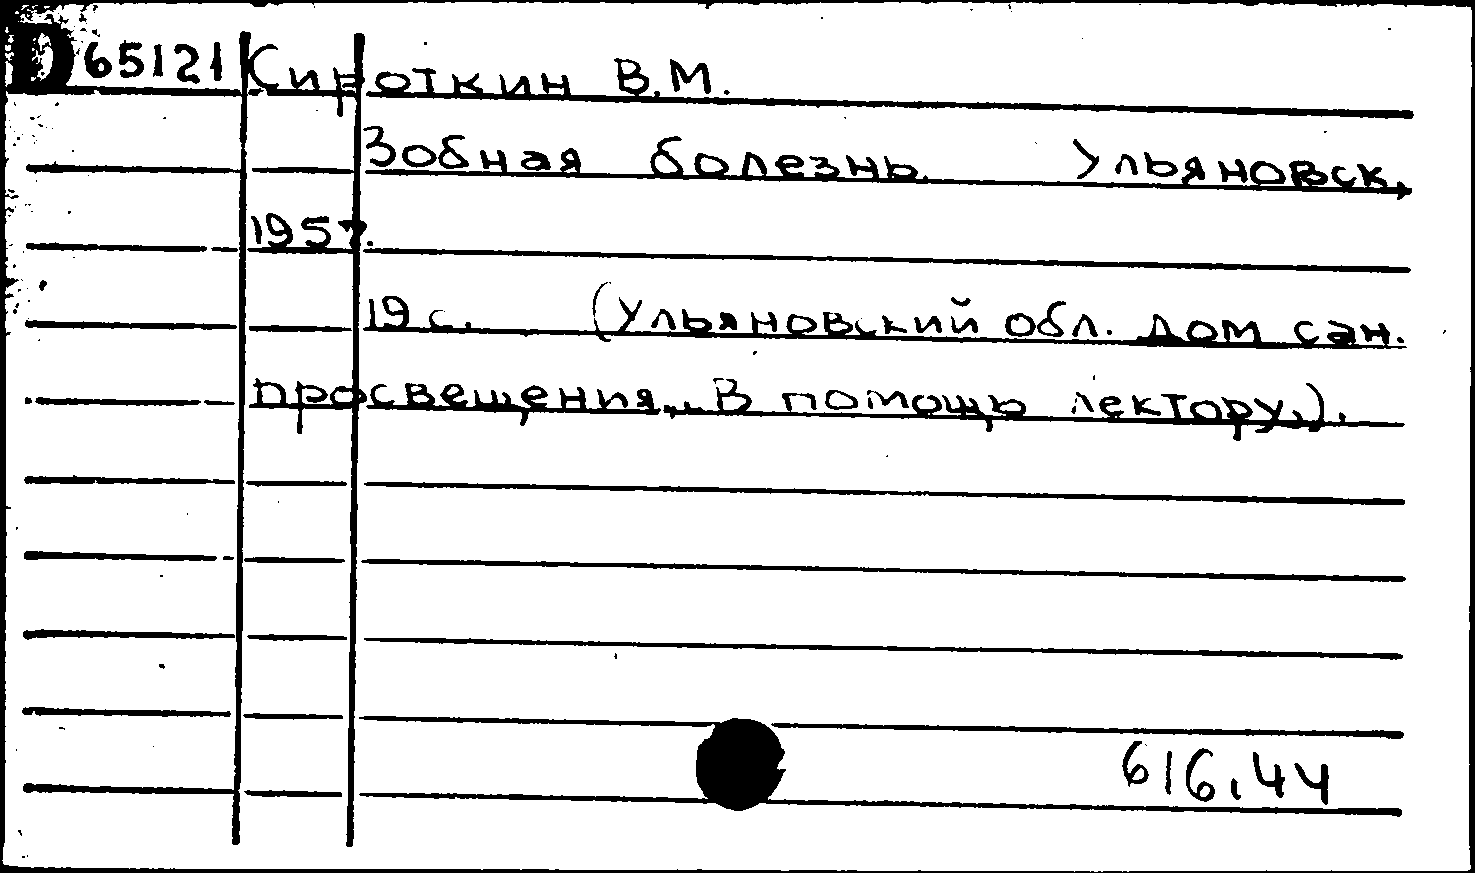 D 65121 Сироткин В.М.
Зобная болезнь. Ульяновск,
1957.
19 с. (Ульяновский обл. дом сан.
просвещения. В помощь лектору.).
616.44